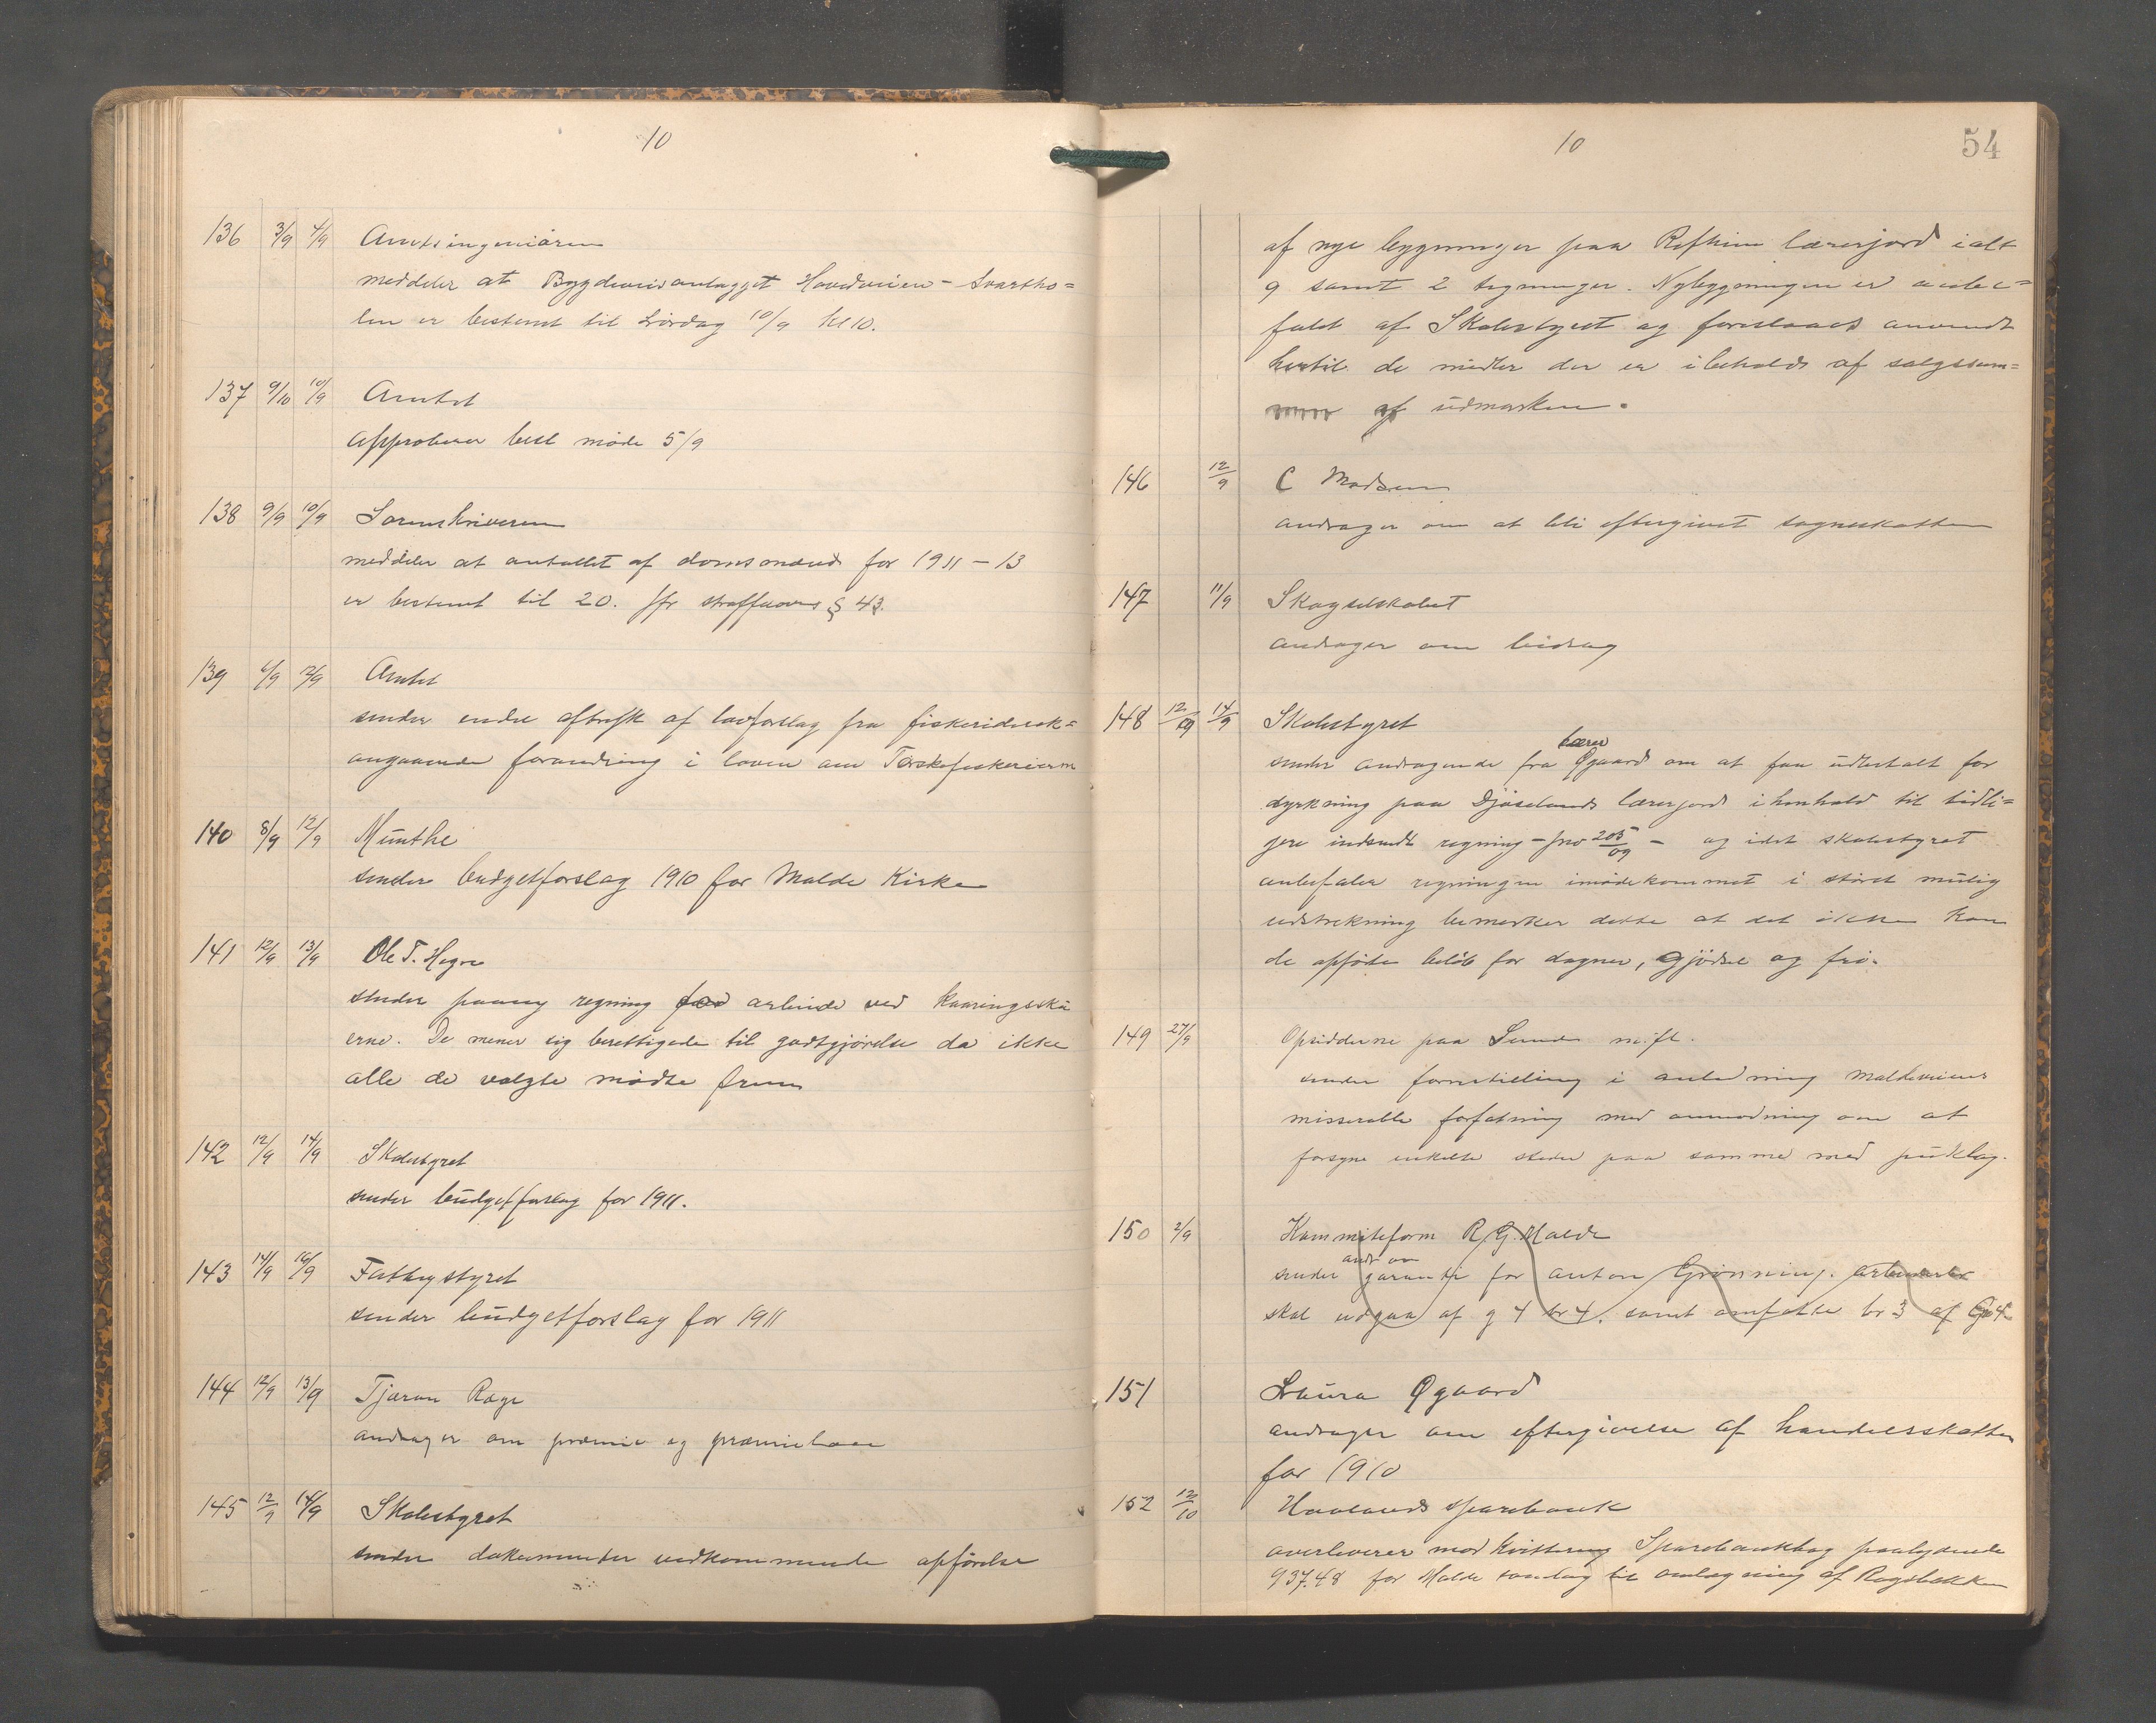 10
136 3/9 4/9 Amtsingeniøren
meddeler at Bygdeveisanlægget Hovedveien - Svartho=
len er bestemt til Lørdag 10/9 kl 10.
137 9/10 10/9 Amtet
Approberer besl møde 5/9
138 9/9 10/9 Sorenskriveren
meddeler at antallet af domsmænd for 1911 - 13
er bestemt til 20. Jfr straffeloven § 43.
139 6/9 12/9 Amtet
sender endel aftryk af lovforslag fra fiskeridirek=
angaaende forandring i loven om Torskefiskerierne
140 8/9 12/9 Munthe
sender budgetforslag 1910 for Malde Kirke
141 12/9 13/9 Ole T. Hogre
sender paany regning for arbeide ved kaaringsskU
erne. De mener sig berettigede til godtgjørelse da ikke
alle de valgte mødte frem
142 12/9 14/9 Skolestyret
sender budgetforslag for 1911.
143 14/9 16/9 Fattigstyret
sender budgetforslag for 1911
144 12/9 13/9 Tjæran Rage
andrager om præmie og præmielaan
145 12/9 14/9 Skolestyret
sender dokumenter vedkommende opførelse
10
54
af nye bygninger paa Refheim lærerjord ialt
9 samt 2 tegninger. Nybygningen er anbe=
falet af Skolestyret og foreslaaes anvendt
hertil de midler der er i behold af salgssum=
af udmarken.
146 12/9 C Madsen
andrager om at bli eftergivet sogneskatten
147 11/9 Skogselskabet
andrager om bidrag
148 12/9 14/9 Skolestyret
lærer
sender andragende fra Øgaard om at faa udbetalt for
dyrkning paa Djøselands lærerjord i henhold til tidli=
gere indsendt regning - jno 205/09 - og idet skolestyret
anbefaler regningen imødekommet i størst mulig
udstrekning bemerker dette at det ikke kan
de opførte beløb for dagner, gjødsel og frø.
149 27/9 Opsidderne paa Sunde m. fl.
sender forestilling i anledning Maldeveiens
misserable forfatning med anmodning om at
forsyne enkelte steder paa samme med puklag.
150 2/9 Kommiteform R. G. Malde
andr om
sender garanti for Anton Grønning. arbeiderbr
skal udgaa af g 4 br 4. samt omfatte br 3 af G 4
151 Laura Øgaard
andrager om eftergivelse af handelsskatten
for 1910
152 12/10 Haalands sparebank
overleverer mod kvittering Sparebankbog paalydende
937.48 for Malde sondag til omlægning af Regebakken